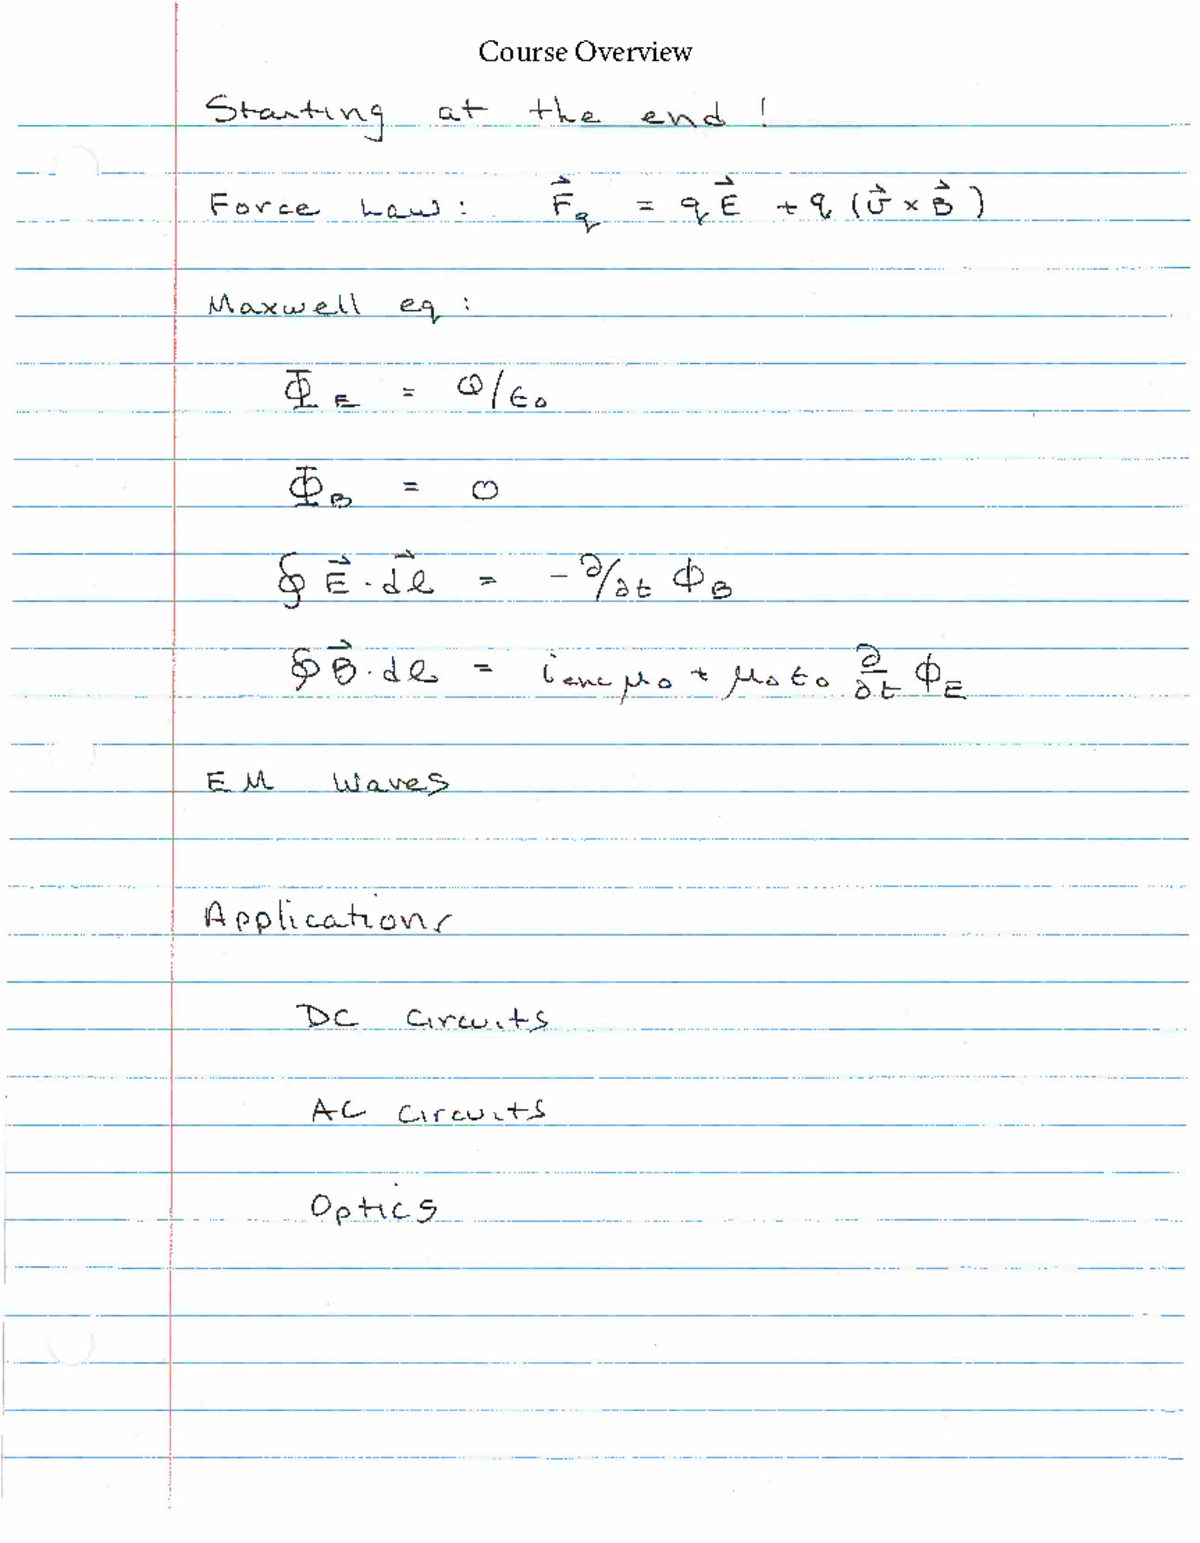 Course Overview
Starting at the end !
Force Law : F⃗_q = qE⃗ + q (v⃗ × B⃗ )
Maxwell eq :
Φ_E = Q/ε₀
Φ_B = 0
∮ E⃗ · dl⃗ = - ∂/∂t ϕ_B
∮ B⃗ · dl = i_enc μ₀ + μ₀ ε₀ ∂/∂t ϕ_E
EM Waves
Applications
DC Circuits
AC Circuits
Optics